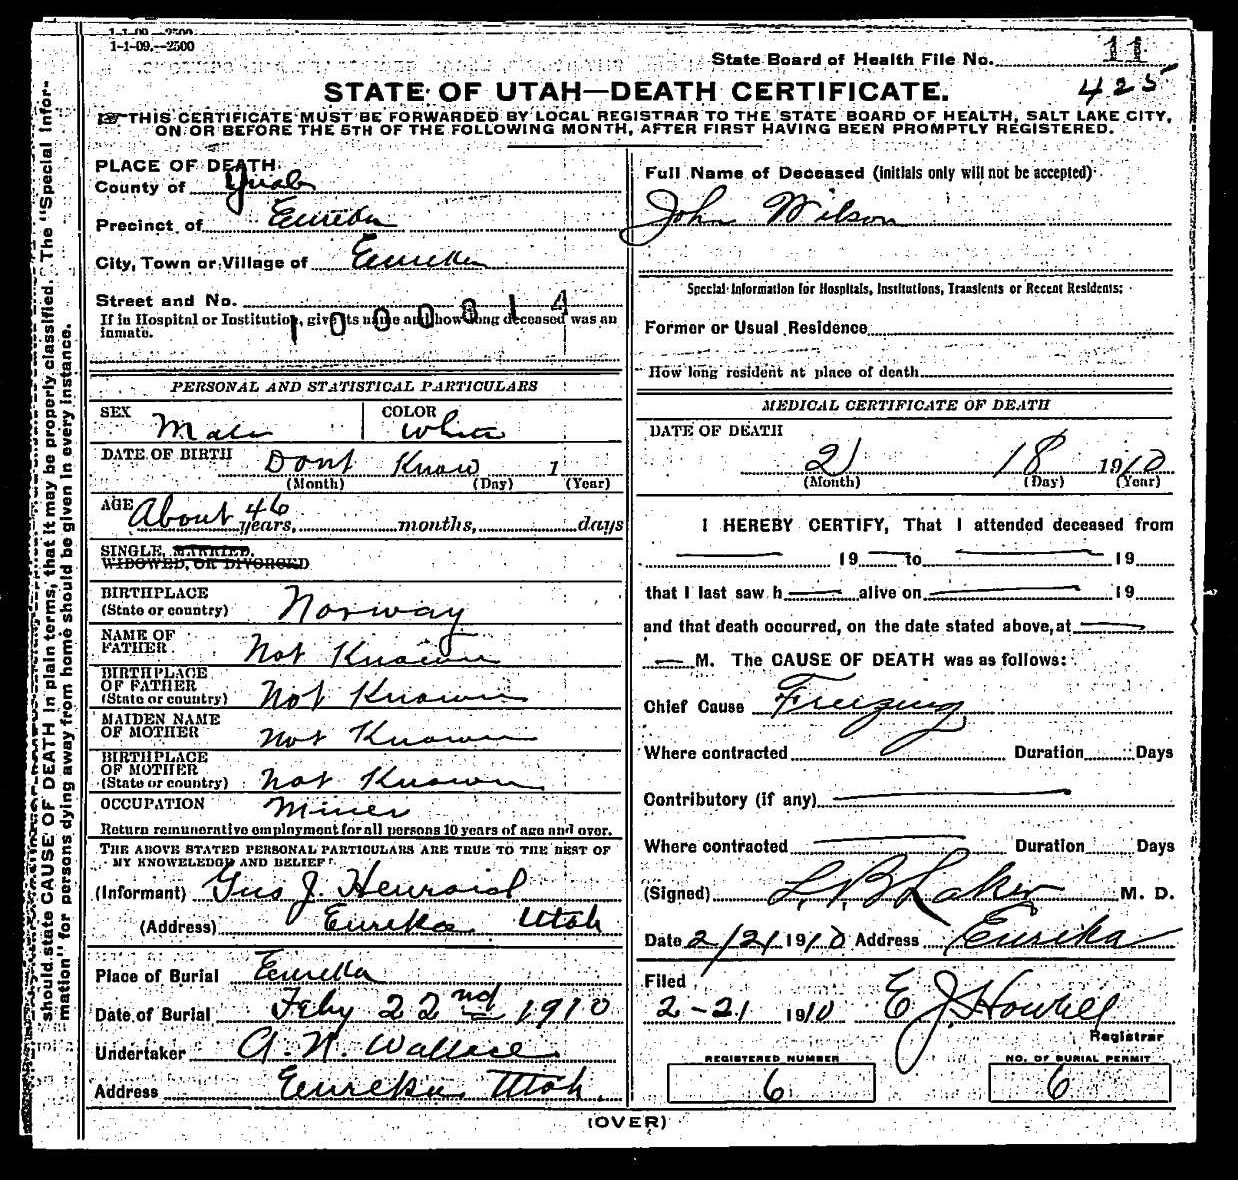 1-1-09.--2500
1-1-09.--2500
State Board of Health File No. 11
425
STATE OF UTAH—DEATH CERTIFICATE.
THIS CERTIFICATE MUST BE FORWARDED BY LOCAL REGISTRAR TO THE STATE BOARD OF HEALTH, SALT LAKE CITY,
ON OR BEFORE THE 5TH OF THE FOLLOWING MONTH, AFTER FIRST HAVING BEEN PROMPTLY REGISTERED.
should state CAUSE OF DEATH in plain terms, that it may be properly classified. The "Special Infor-
mation" for persons dying away from home should be given in every instance.
PLACE OF DEATH.
County of Juab
Precinct of Eureka
City, Town or Village of Eureka
Street and No.
If in Hospital or Institution, give its name and how long deceased was an
inmate.
1000314
PERSONAL AND STATISTICAL PARTICULARS
SEX Male COLOR White
DATE OF BIRTH Dont Know 1
(Month) (Day) (Year)
AGE About 46 years, months, days
SINGLE, MARRIED,
WIDOWED, OR DIVORCED
BIRTHPLACE
(State or country) Norway
NAME OF
FATHER Not Known
BIRTHPLACE
OF FATHER
(State or country) Not Known
MAIDEN NAME
OF MOTHER Not Known
BIRTHPLACE
OF MOTHER
(State or country) Not Known
OCCUPATION Miner
Return remunerative employment for all persons 10 years of age and over.
THE ABOVE STATED PERSONAL PARTICULARS ARE TRUE TO THE BEST OF
MY KNOWELEDGE AND BELIEF
(Informant) Gus J. Henroid
(Address) Eureka Utah
Place of Burial Eureka
Date of Burial Feby 22nd 1910
Undertaker A. N. Wallace
Address Eureka Utah.
Full Name of Deceased (initials only will not be accepted)
John Wilson
Special Information for Hospitals, Institutions, Transients or Recent Residents;
Former or Usual Residence
How long resident at place of death
MEDICAL CERTIFICATE OF DEATH
DATE OF DEATH
2 18 1910
(Month) (Day) (Year)
I HEREBY CERTIFY, That I attended deceased from
19 to 19
that I last saw h alive on 19
and that death occurred, on the date stated above, at
M. The CAUSE OF DEATH was as follows:
Chief Cause Freezing
Where contracted Duration Days
Contributory (if any)
Where contracted Duration Days
(Signed) L. B. Laker M. D.
Date 2/21 1910 Address Eureka
Filed
2-21 1910 E J Howell
Registrar
REGISTERED NUMBER
6
NO. OF BURIAL PERMIT
6
(OVER)